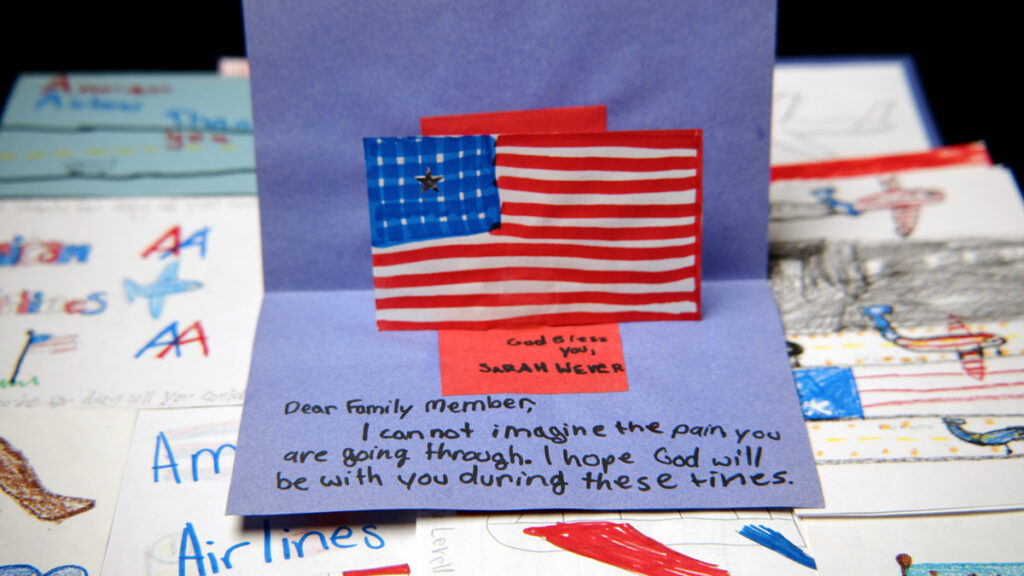 American
Airlines
Thank
you
AA
AA
God Bless
you,
SARAH WEVER
Dear Family Member,
I can not imagine the pain you
are going through. I hope God will
be with you during these times.
Am
Airlines
Levell